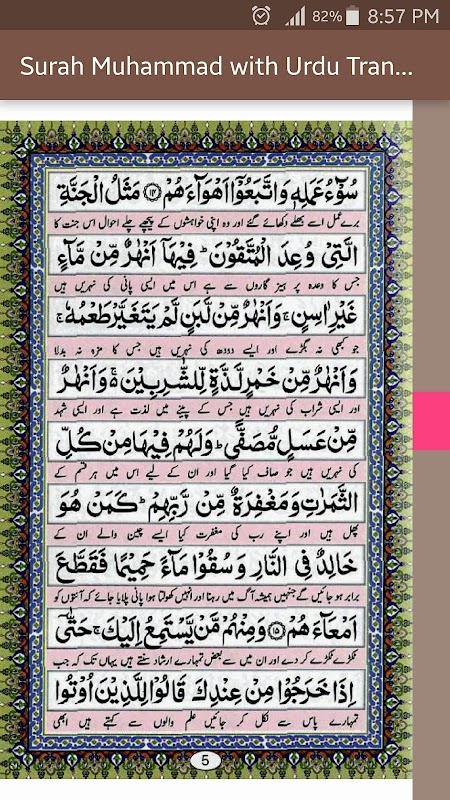 82% 8:57 PM
Surah Muhammad with Urdu Tran...
سُوْٓءُ عَمَلِهٖ وَاتَّبَعُوْٓا اَهْوَآءَهُمْ ﴿۱۴﴾ مَثَلُ الْجَنَّةِ
برے عمل اسے بھلے دکھائے گئے اور وہ اپنی خواہشوں کے پیچھے چلے احوال اس جنت کا
الَّتِيْ وُعِدَ الْمُتَّقُوْنَ ؕ فِيْهَاۤ اَنْهٰرٌ مِّنْ مَّآءٍ
جس کا وعدہ پر ہیز گاروں سے ہے اس میں ایسی پانی کی نہریں ہیں
غَيْرِ اٰسِنٍ ۚ وَاَنْهٰرٌ مِّنْ لَّبَنٍ لَّمْ يَتَغَيَّرْ طَعْمُهٗ ۚ
جو کبھی نہ بگڑے اور ایسے دودھ کی نہریں ہیں جس کا مزہ نہ بدلا
وَاَنْهٰرٌ مِّنْ خَمْرٍ لَّذَّةٍ لِّلشّٰرِبِيْنَ ۬ۚ وَاَنْهٰرٌ
اور ایسی شراب کی نہریں ہیں جس کے پینے میں لذت ہے اور ایسی شہد
مِّنْ عَسَلٍ مُّصَفًّى ؕ وَلَهُمْ فِيْهَا مِنْ كُلِّ
کی نہریں ہیں جو صاف کیا گیا اور ان کے لیے اس میں ہر قسم کے
الثَّمَرٰتِ وَمَغْفِرَةٌ مِّنْ رَّبِّهِمْ ؕ كَمَنْ هُوَ
پھل ہیں اور اپنے رب کی مغفرت کیا ایسے چین والے ان کے
خَالِدٌ فِي النَّارِ وَسُقُوْا مَآءً حَمِيْمًا فَقَطَّعَ
برابر ہو جائیں گے جنہیں ہمیشہ آگ میں رہنا اور انہیں کھولتا ہوا پانی پلایا جائے کہ آنتوں کو
اَمْعَآءَهُمْ ﴿۱۵﴾ وَمِنْهُمْ مَّنْ يَّسْتَمِعُ اِلَيْكَ ۚ حَتّٰۤى
ٹکڑے ٹکڑے کر دے اور ان میں سے بعض تمہارے ارشاد سنتے ہیں یہاں تک کہ جب
اِذَا خَرَجُوْا مِنْ عِنْدِكَ قَالُوْا لِلَّذِيْنَ اُوْتُوا
تمہارے پاس سے نکل کر جائیں علم والوں سے کہتے ہیں ابھی
5